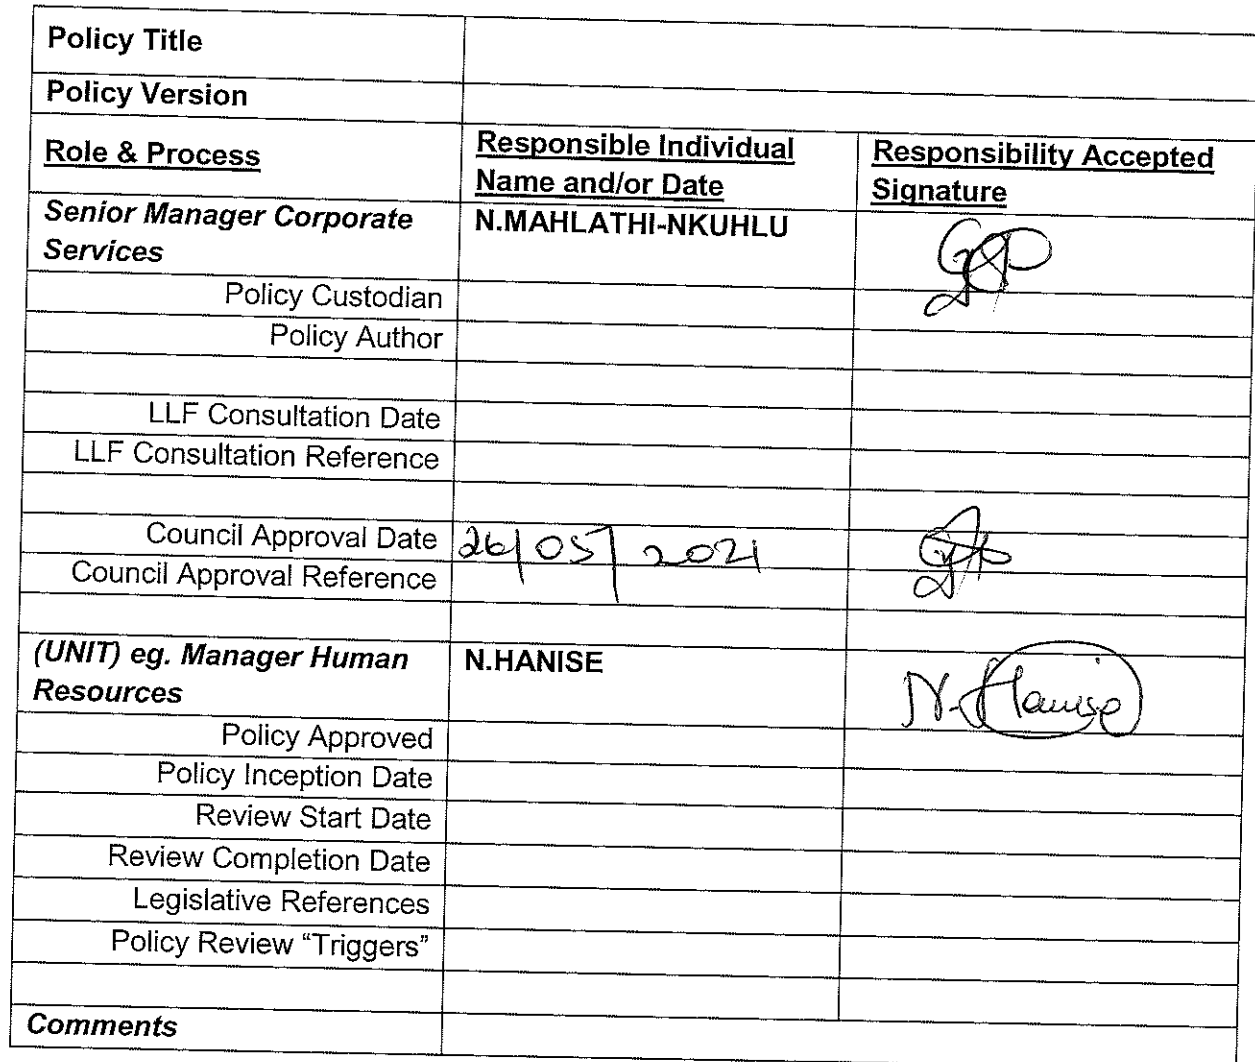 Policy Title
Policy Version
Role & Process
Responsible Individual
Name and/or Date
Responsibility Accepted
Signature
Senior Manager Corporate
Services
N.MAHLATHI-NKUHLU
Policy Custodian
Policy Author
LLF Consultation Date
LLF Consultation Reference
Council Approval Date
26/05/2021
Council Approval Reference
(UNIT) eg. Manager Human
Resources
N.HANISE
N. Hanise
Policy Approved
Policy Inception Date
Review Start Date
Review Completion Date
Legislative References
Policy Review “Triggers”
Comments